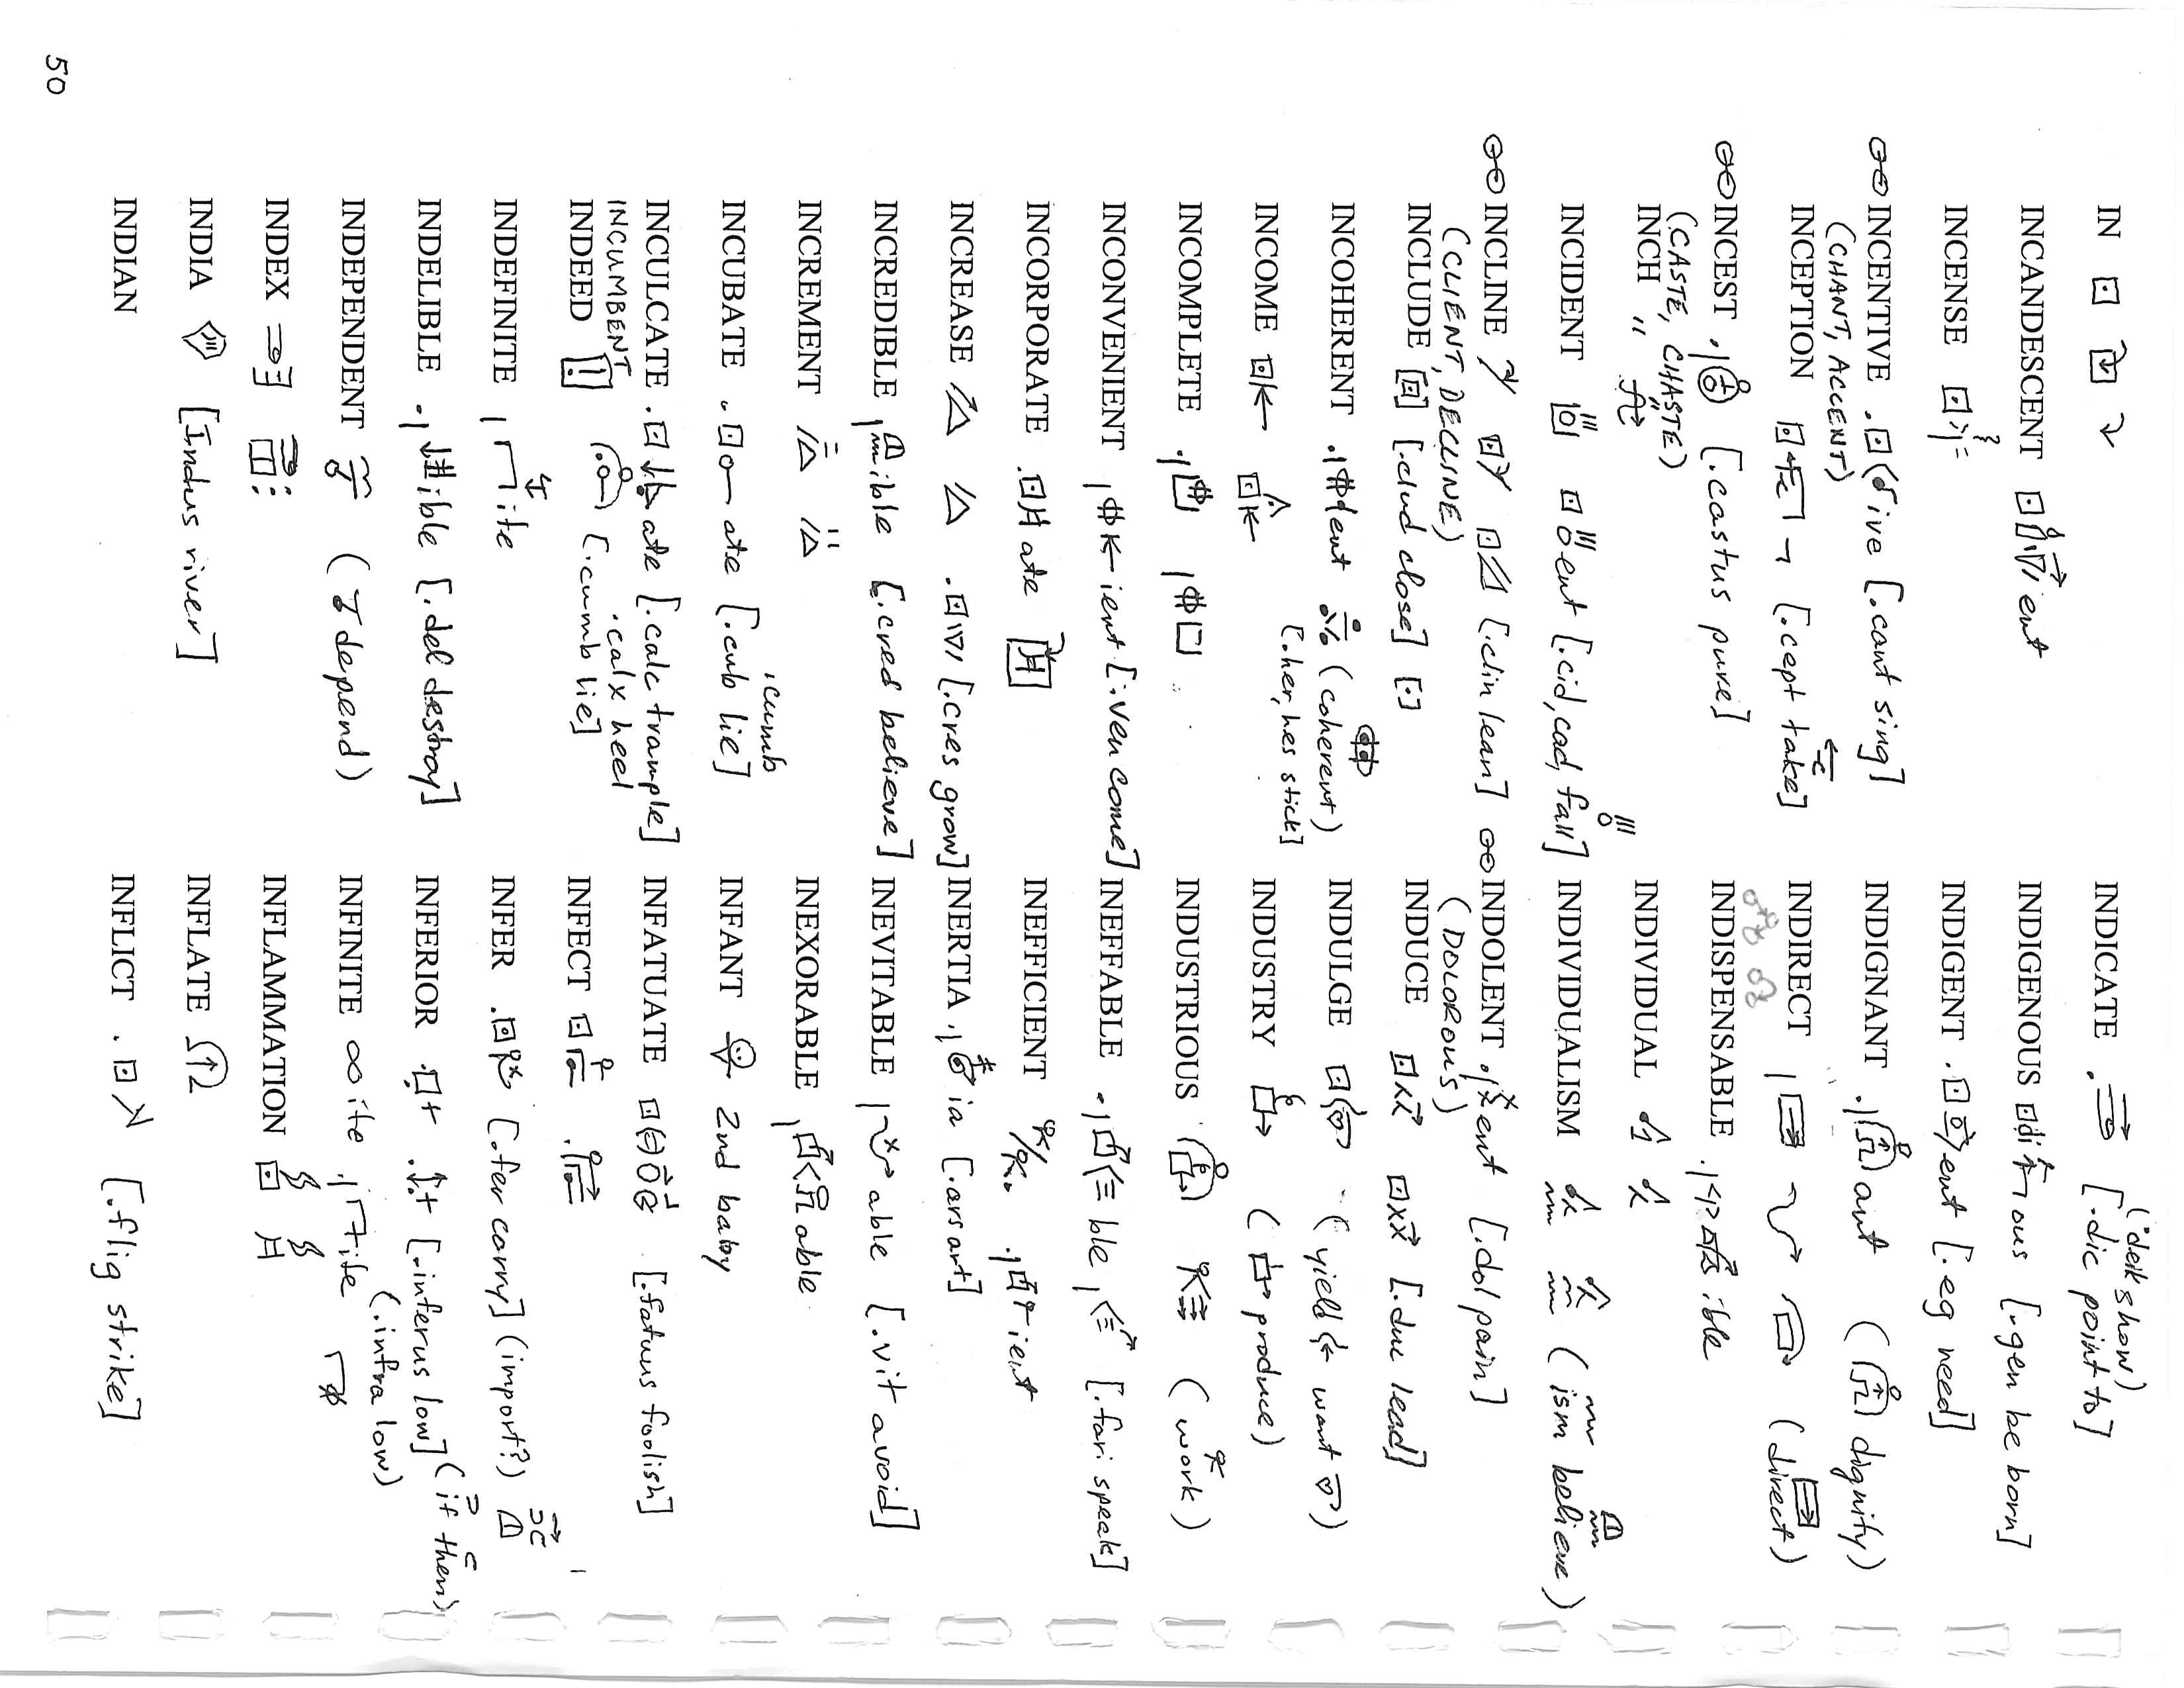 IN
INCANDESCENT ent
INCENSE
INCENTIVE ive [.cant sing]
(CHANT, ACCENT)
INCEPTION [.cept take]
INCEST [.castus pure]
(CASTE, CHASTE)
INCH "
INCIDENT ent [.cid, cad, fall]
INCLINE [.clin lean]
(CLIENT, DECLINE)
INCLUDE [.clud close]
INCOHERENT ent (coherent)
[.her, hes stick]
INCOME
INCOMPLETE
INCONVENIENT ient [.ven come]
INCORPORATE ate
INCREASE [.cres grow]
INCREDIBLE ible [.cred believe]
INCREMENT
INCUBATE ate [.cub lie]
.cumb
INCULCATE ate [.calc trample]
.calx heel
INCUMBENT [.cumb lie]
INDEED
INDEFINITE ite
INDELIBLE ible [.del destroy]
INDEPENDENT (depend)
INDEX
INDIA [Indus river]
INDIAN
INDICATE [.dic point to]
(.deik show)
INDIGENOUS di ous [.gen be born]
INDIGENT ent [.eg need]
INDIGNANT ant (dignity)
INDIRECT (direct)
INDISPENSABLE ible
INDIVIDUAL
INDIVIDUALISM (ism believe)
INDOLENT ent [.dol pain]
(DOLOROUS)
INDUCE [.duc lead]
INDULGE (yield want)
INDUSTRY (produce)
INDUSTRIOUS (work)
INEFFABLE ble [.fari speak]
INEFFICIENT ient
INERTIA ia [.ars art]
INEVITABLE able [.vit avoid]
INEXORABLE able
INFANT 2nd baby
INFATUATE [.fatuus foolish]
INFECT
INFER [.fer carry] (import?)
INFERIOR [.inferus low] (if then)
(.infra low)
INFINITE ite ite
INFLAMMATION
INFLATE
INFLICT [.flig strike]
50